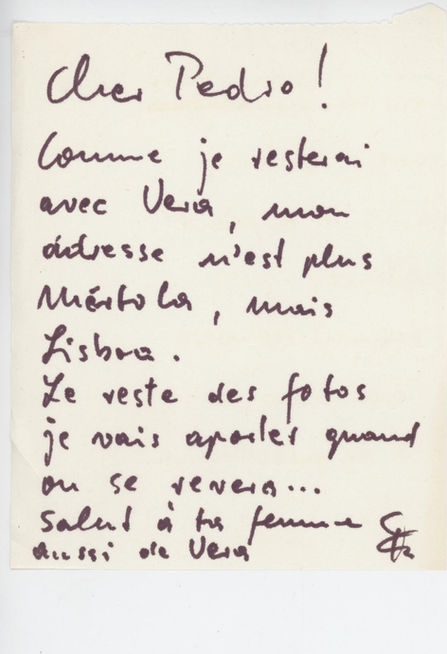 Cher Pedro!
Comme je resterai
avec Vera, mon
adresse n'est plus
Mértola, mais
Lisboa.
Le reste des fotos
je vais aporter quand
on se revera...
Salut à ta femme
aussi de Vera